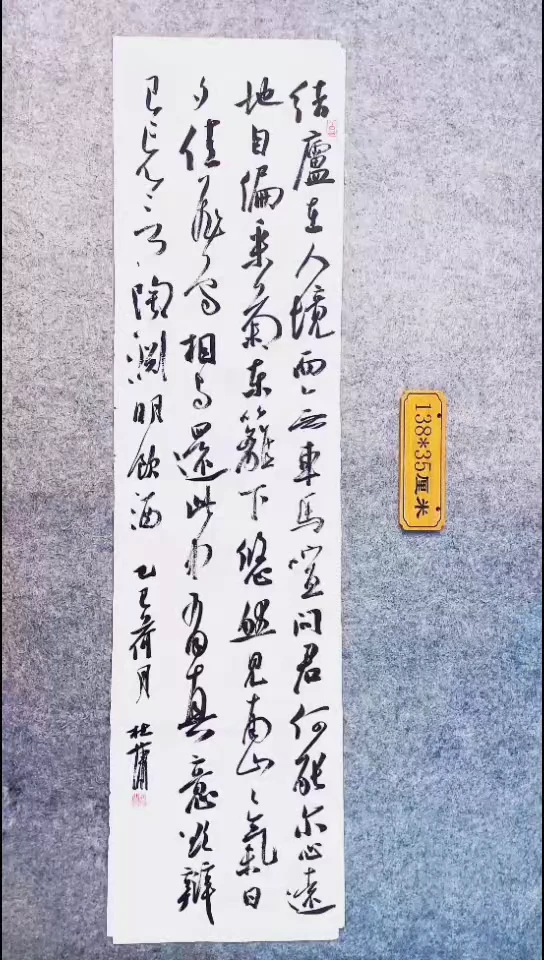 结廬在人境而无車馬喧问君何能尔心遠
地自偏采菊东籬下悠然見南山〻氣日
夕佳飛鳥相与還此中有真意欲辯
已忘言 陶渊明飲酒 乙巳荷月 杜
138*35厘米